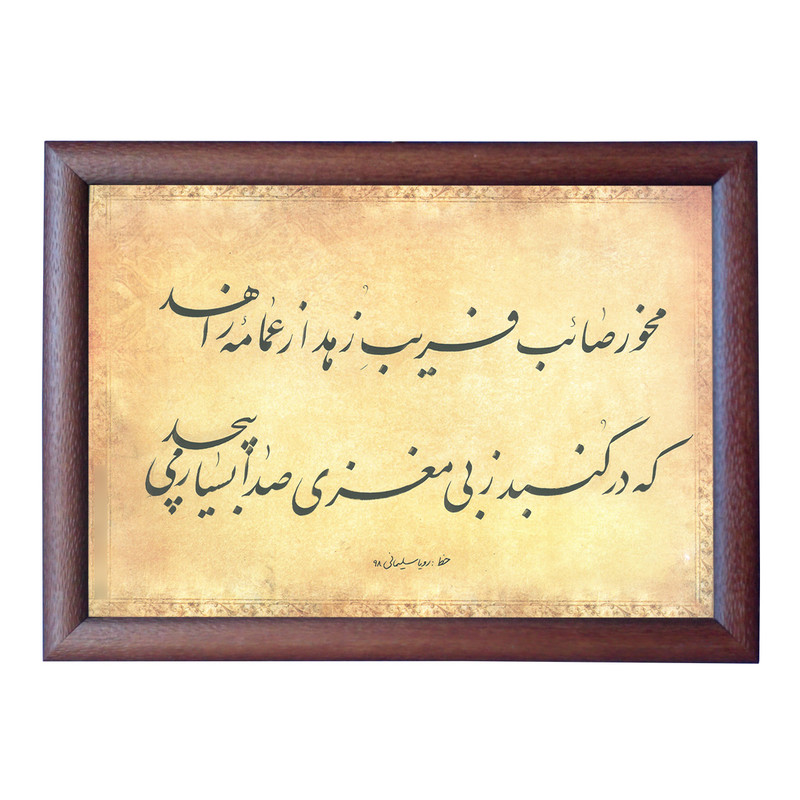 مخور صائب فریبِ زهد از عمامهٔ زاهد
که در گنبد ز بی مغزی صدا بسیار می پیچد
خط : رویا سلیمانی ۹۸